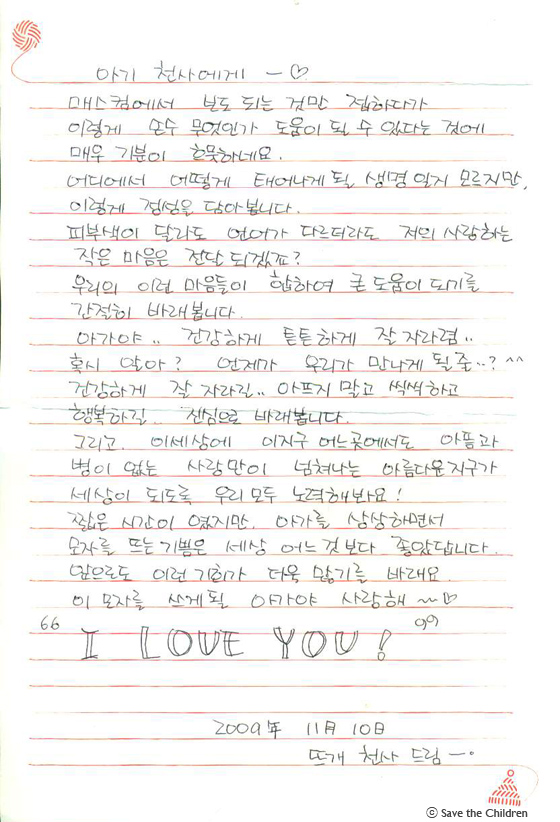 아기 천사에게 — ♡
매스컴에서 보도 되는 것만 접하다가
이렇게 손수 무엇인가 도움이 될 수 있다는 것에
매우 기분이 흐뭇하네요.
어디에서 어떻게 태어나게 될 생명 일지 모르지만,
이렇게 정성을 담아봅니다.
피부색이 달라도 언어가 다르더라도 저의 사랑하는
작은 마음은 전달 되겠죠?
우리의 이런 마음들이 합하여 큰 도움이 되기를
간절히 바래봅니다.
아가야.. 건강하게 튼튼하게 잘 자라렴..
혹시 알아? 언젠가 우리가 만나게 될줄..? ^^
건강하게 잘 자라길.. 아프지 말고 씩씩하고
행복하길.. 진심으로 바래봅니다.
그리고. 이세상에 이지구 어느곳에서도 아픔과
병이 없는 사랑만이 넘쳐나는 아름다운 지구가
세상이 되도록 우리 모두 노력해봐요!
짧은 시간이 였지만. 아가를 상상하면서
모자를 뜨는 기쁨은 세상 어느 것 보다 좋았답니다.
앞으로도 이런 기회가 더욱 많기를 바래요.
이 모자를 쓰게 될 아가야 사랑해 ~♡
66 I LOVE YOU! 99
2009年 11月 10日
뜨개 천사 드림 —.
ⓒ Save the Children